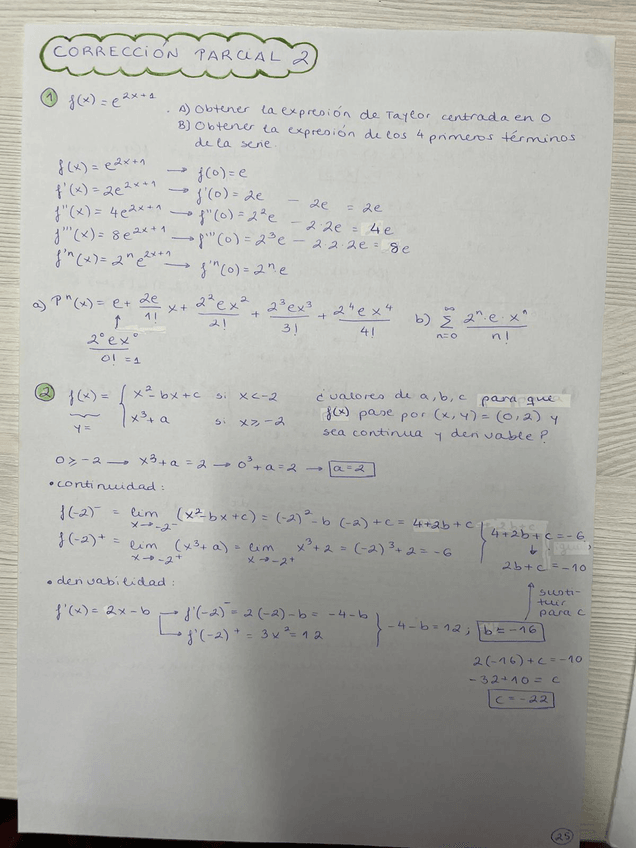 CORRECCIÓN PARCIAL 2
① f(x) = e^{2x+1}
. A) Obtener la expresión de Taylor centrada en 0
B) Obtener la expresión de los 4 primeros términos
de la serie.
f(x) = e^{2x+1} → f(0) = e
f'(x) = 2e^{2x+1} → f'(0) = 2e — 2e = 2e
f''(x) = 4e^{2x+1} → f''(0) = 2²e — 2·2e = 4e
f'''(x) = 8e^{2x+1} → f'''(0) = 2³e — 2·2·2e = 8e
f'ⁿ(x) = 2ⁿe^{2x+1} → f'ⁿ(0) = 2ⁿ·e
a) Pⁿ(x) = e + 2e/1! x + 2²ex²/2! + 2³ex³/3! + 2⁴ex⁴/4! b) ∑_{n=0}^{∞} 2ⁿ·e·xⁿ/n!
↑
2⁰ex⁰/0! = 1
② f(x) = { x² - bx + c si x < -2
x³ + a si x ≥ -2
y =
¿valores de a, b, c para que
f(x) pase por (x, y) = (0, 2) y
sea continua y derivable?
0 ≥ -2 → x³ + a = 2 → 0³ + a = 2 → a = 2
• continuidad:
f(-2)⁻ = lim_{x→-2⁻} (x² - bx + c) = (-2)² - b(-2) + c = 4 + 2b + c
f(-2)⁺ = lim_{x→-2⁺} (x³ + a) = lim_{x→-2⁺} x³ + 2 = (-2)³ + 2 = -6
} 4 + 2b + c = -6
↓
2b + c = -10
• derivabilidad:
f'(x) = 2x - b → f'(-2)⁻ = 2(-2) - b = -4 - b
→ f'(-2)⁺ = 3x² = 12
} -4 - b = 12; b = -16
↑ susti-
tuir
para c
2(-16) + c = -10
-32 + 10 = c
c = -22
25